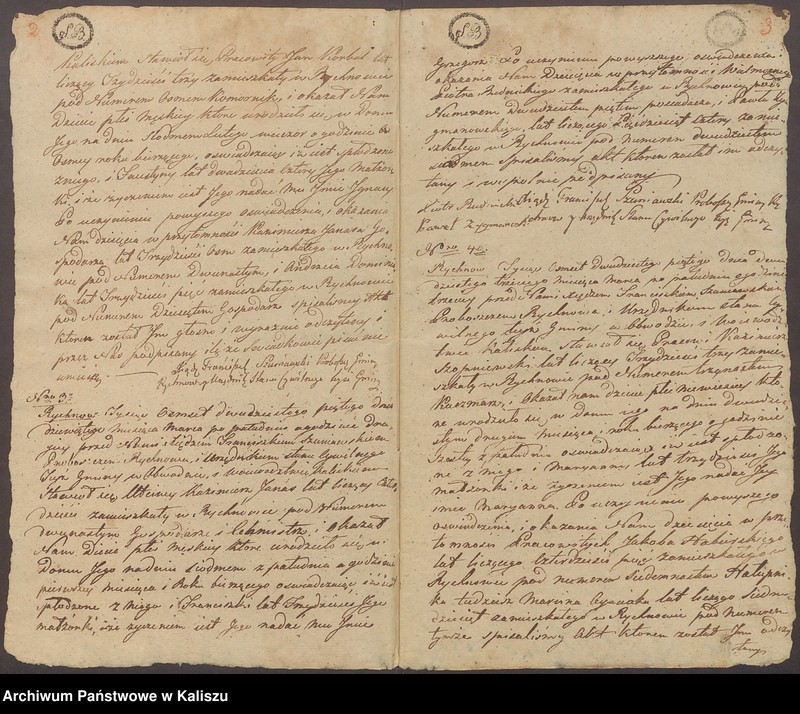 2
SB
Kaliskim Stawił się Pracowity Jan Konbal lat
liczący Trzydzieści trzy zamieszkały w Rychnowie
pod Numerem Osmem Komornik, i okazał Nam
Dziecie płci męskiey które urodziło się w Domu
Jego na dniu Siodmem Lutego wieczor o godzinie
Osmey roku bieżącego, oświadczaiąc iż iest spłodzone
z niego, i Faustyny lat dwadzieścia cztery Jego Małżon
ki, i że życzeniem iest Jego nadać Mu Jmie Jgnacy
Po uczynieniu powyższego oświadczenia i okazania
Nam dziecięcia w przytomności Kazimierza Janasa Go,
spodarza lat Trzydzieści Osm zamieszkałego w Rychno,
wie pod Numerem Dwunastym, i Andrzeia
lat Trzydzieści pięć zamieszkałego w Rychnowie
pod Numerem Dziesiątem Gospodarz spisaliśmy Akt
ktoren został Jm głośno i wyraznie odczytany i
przez Nas podpisany iż Swiadkowie pisać nie
umieią.
Xiądz Franciszek Szumański Proboszcz Gminy
Rychnow Urzędnik Stanu Cywilnego teyże Gminy
Nro 3.
Rychnow Tysiąc Osmset dwudziestego piątego dnia
dziewiątego miesiąca Marca po południu o godzinie
przed Nami Xiędzem Franciszkiem Szumańskiem
Proboszczem Rychnowa, i Urzędnikiem stanu Cywilnego
teyże Gminy w Obwodzie, i Woiewodztwie Kaliskim
Stawił się Uczciwy Kazimierz Janas lat liczący
zamieszkały w Rychnowie pod Numerem
dwunastym Gospodarz i okazał
Nam Dziecie płci męskiey które urodziło się w
Domu Jego na dniu siodmem z południa o godzinie
pierwszey miesiąca i Roku bieżącego oświadczaiąc iż iest
spłodzone z niego i Franciszki lat Trzydzieści Jego
małżonki, i że życzeniem iest Jego nadać Mu Jmie
SB
3
Grzegorz. Po uczynieniu powyższego oświadczenia i
okazania Nam Dziecięcia w przytomności Walentego
zamieszkałego w Rychnowie pod
Numerem Dwudziestem piątem i Pawła
lat liczący Pięćdziesiąt cztery zamie,
szkałego w Rychnowie pod Numerem dwudziestem
spisaliśmy akt ktoren został im odczy,
tany i wspolnie podpisany
Xiądz Franciszek Szumański Proboszcz Gminy
Paweł Rychnow Urzędnik Stanu Cywilnego teyże Gminy
Nro 4.
Rychnow Tysiąc Osmset Dwudziestego piątego Dnia dwu
dziestego trzeciego miesiąca Marca po południu o godzinie
trzeciey przed Nami Xiędzem Franciszkiem Szumańskim
Proboszczem Rychnowa, i Urzędnikiem stanu Cy
wilnego teyże Gminy w Obwodzie i Woiewodz
twie Kaliskim Stawił się Pracow: Kazimierz
Szopniewski lat liczący Trzydzieści trzy zamie
szkały w Rychnowie pod Numerem trzynastem
Karczmarz, i Okazał nam dziecie płci niewieściey kto,
re urodziło się w domu Jego na dniu dwudzie,
stym drugim miesiąca, roku bieżącego o godzinie
Szostey z południa oświadczaiąc iż iest spłodzo,
ne z niego i Maryanny, lat trzydzieści Jego
małżonki i że życzeniem iest Jego nadać Jey
imie Maryanna. Po uczynieniu powyższego
oświadczenia, i okazania Nam dziecięcia w przy
tomności Pracowitych Jakoba
lat liczącego Czterdzieści pięć zamieszkałego w
Rychnowie pod numerem Siedemnastem Chałupni,
ka tudzież Marcina lat liczącego Siedm
dziesiąt zamieszkałego w Rychnowie pod numerem
tymże spisaliśmy Akt ktoren został Jm odczy
tany
Archiwum Państwowe w Kaliszu